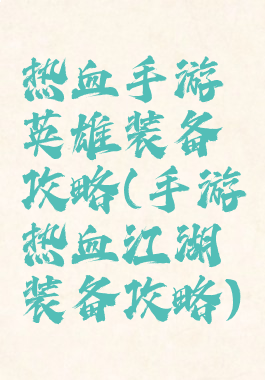 热血手游
英雄装备
攻略(手游
热血江湖
装备攻略)